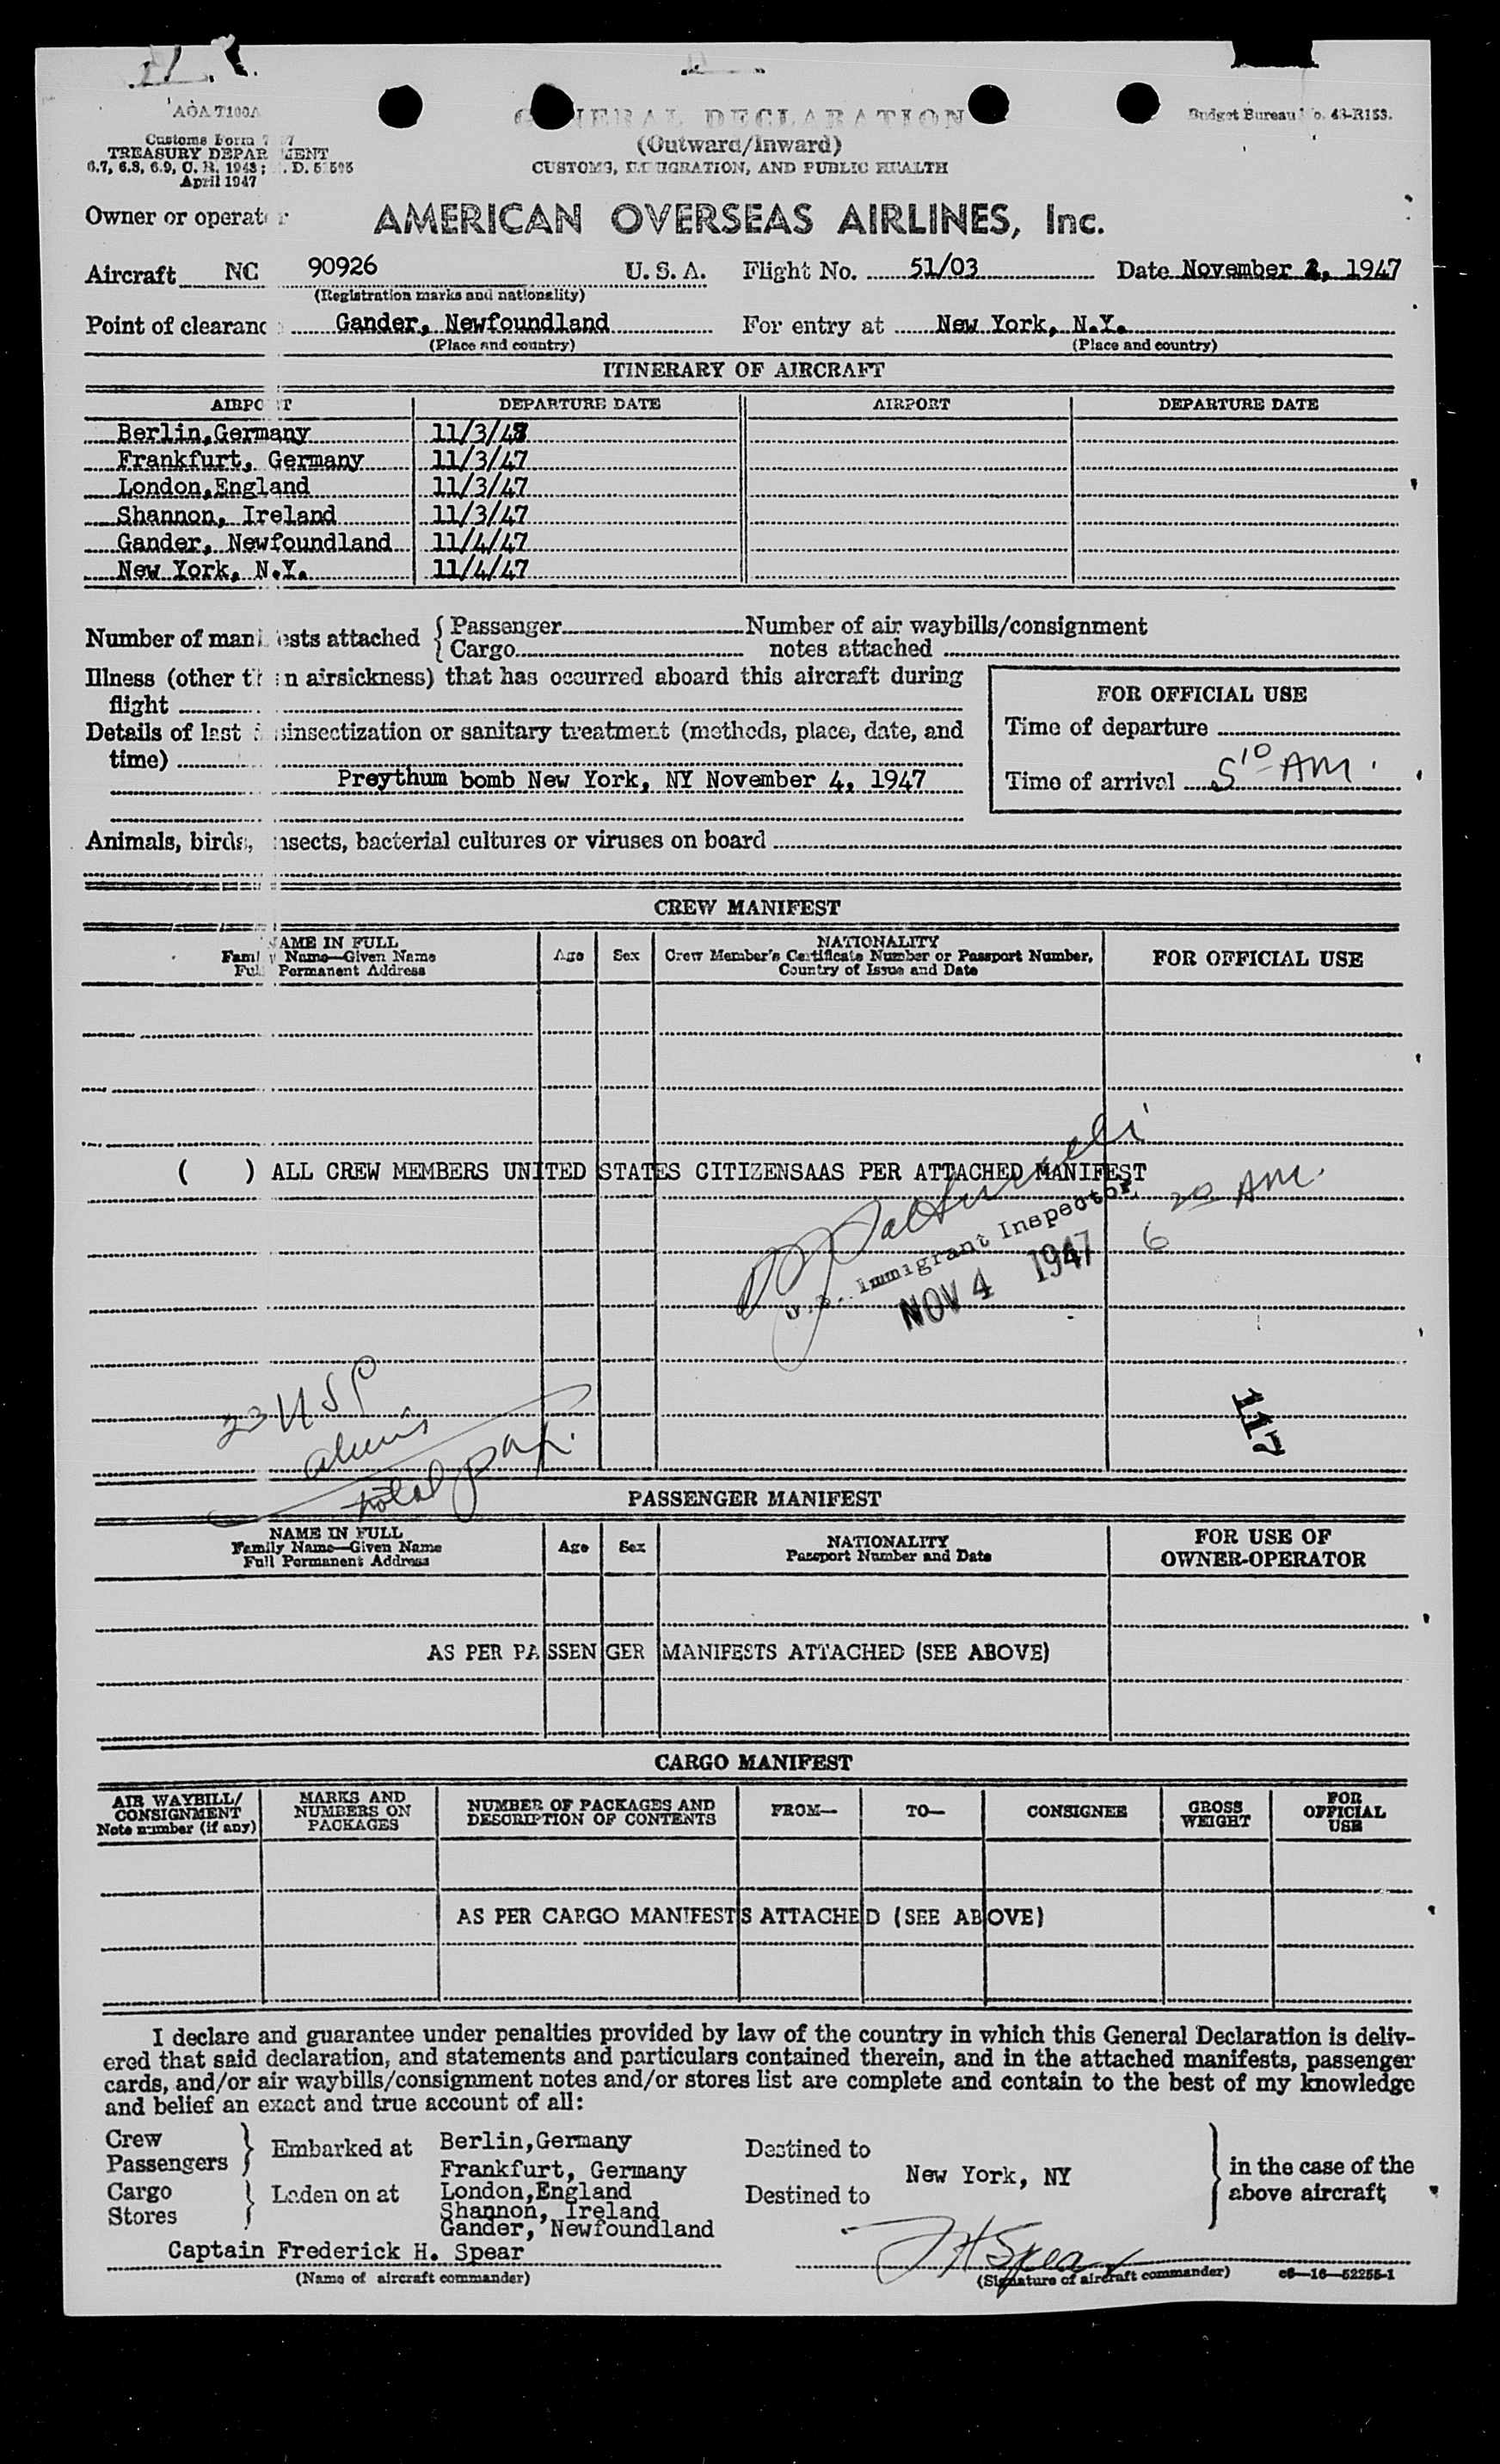 AOA T100A
GENERAL DECLARATION
Budget Bureau No. 48-R153.
Customs Form
(Outward/Inward)
TREASURY DEPARTMENT
CUSTOMS, IMMIGRATION, AND PUBLIC HEALTH
6.7, 6.8, 6.9, C. R. 1943;
April 1947
Owner or operator AMERICAN OVERSEAS AIRLINES, Inc.
Aircraft NC 90926 U. S. A. Flight No. 51/03 Date November 1947
(Registration marks and nationality)
Point of clearance Gander, Newfoundland For entry at New York, N.Y.
(Place and country) (Place and country)
ITINERARY OF AIRCRAFT
AIRPORT DEPARTURE DATE AIRPORT DEPARTURE DATE
Berlin,Germany 11/3/47
Frankfurt, Germany 11/3/47
London,England 11/3/47
Shannon, Ireland 11/3/47
Gander, Newfoundland 11/4/47
New York, N.Y. 11/4/47
Number of manifests attached { Passenger Number of air waybills/consignment
Cargo notes attached
Illness (other than airsickness) that has occurred aboard this aircraft during
flight
FOR OFFICIAL USE
Details of last disinsectization or sanitary treatment (methods, place, date, and
time)
Time of departure
Preythum bomb New York, NY November 4, 1947
Time of arrival 5 10 AM.
Animals, birds, insects, bacterial cultures or viruses on board
CREW MANIFEST
NAME IN FULL
Family Name—Given Name
Full Permanent Address
Age Sex
NATIONALITY
Crew Member's Certificate Number or Passport Number,
Country of Issue and Date
FOR OFFICIAL USE
( ) ALL CREW MEMBERS UNITED STATES CITIZENSAAS PER ATTACHED MANIFEST
6 20 AM.
U.S. Immigrant Inspector
NOV 4 1947
23 USP
aliens
total pax.
117
PASSENGER MANIFEST
NAME IN FULL
Family Name—Given Name
Full Permanent Address
Age Sex
NATIONALITY
Passport Number and Date
FOR USE OF
OWNER-OPERATOR
AS PER PASSENGER MANIFESTS ATTACHED (SEE ABOVE)
CARGO MANIFEST
AIR WAYBILL/
CONSIGNMENT
Note number (if any)
MARKS AND
NUMBERS ON
PACKAGES
NUMBER OF PACKAGES AND
DESCRIPTION OF CONTENTS
FROM— TO— CONSIGNEE
GROSS
WEIGHT
FOR
OFFICIAL
USE
AS PER CARGO MANIFESTS ATTACHED (SEE ABOVE)
I declare and guarantee under penalties provided by law of the country in which this General Declaration is deliv-
ered that said declaration, and statements and particulars contained therein, and in the attached manifests, passenger
cards, and/or air waybills/consignment notes and/or stores list are complete and contain to the best of my knowledge
and belief an exact and true account of all:
Crew
Passengers } Embarked at Berlin,Germany Destined to
Frankfurt, Germany New York, NY } in the case of the
Cargo
Stores } Laden on at London,England Destined to above aircraft
Shannon, Ireland
Gander, Newfoundland
Captain Frederick H. Spear F H Spear
(Name of aircraft commander) (Signature of aircraft commander) c6—16—52255-1